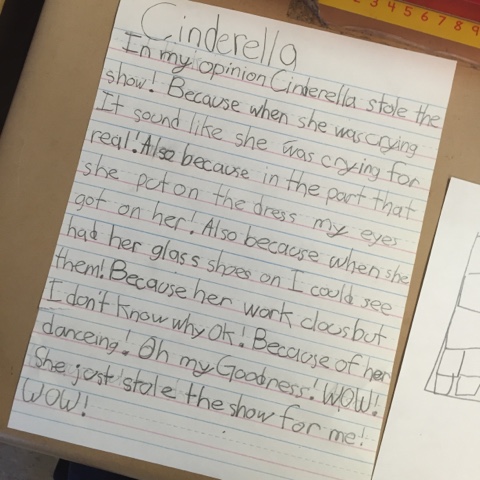 3 4 5 6 7 8 9
Cinderella
In my opinion Cinderella stole the
show! Because when she was crying
It sound like she was crying for
real! Also because in the part that
she pct on the dress my eyes
got on her! Also because when she
had her glass shoes on I could see
them! Because her work clous but
I don't know why Ok! Because of her
danceing! Oh my Goodness! WOW!
She just stole the show for me!
WOW!